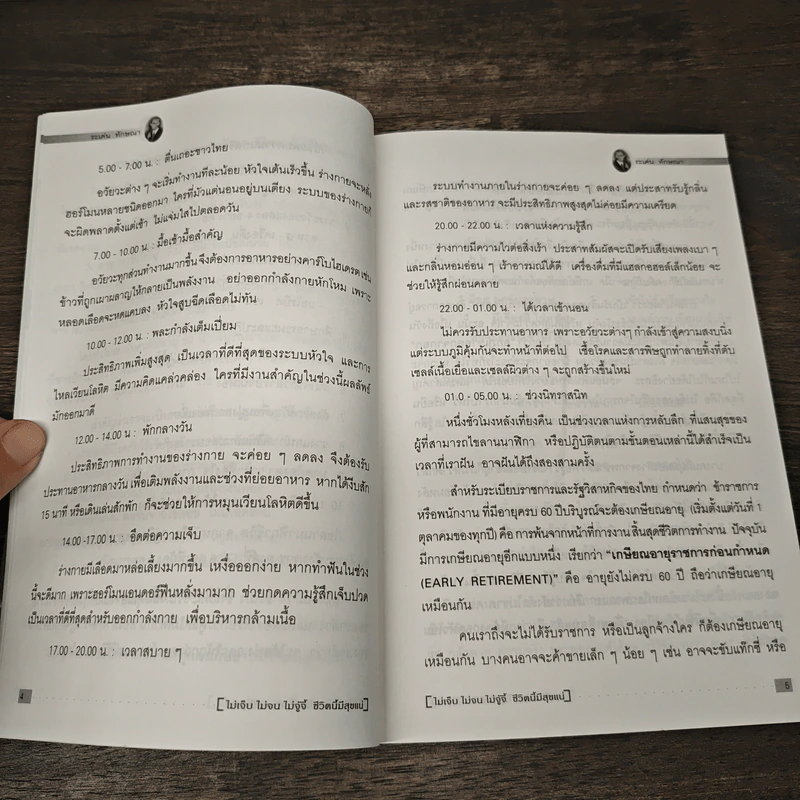 ระเด่น ทักษณา
5.00 - 7.00 น. : ตื่นเถอะชาวไทย
อวัยวะต่าง ๆ จะเริ่มทำงานทีละน้อย หัวใจเต้นเร็วขึ้น ร่างกายจะหลั่ง
ฮอร์โมนหลายชนิดออกมา ใครที่มัวแต่นอนอยู่บนเตียง ระบบของร่างกายก็
จะผิดพลาดตั้งแต่เช้า ไม่แจ่มใสไปตลอดวัน
7.00 - 10.00 น. : มื้อเช้ามื้อสำคัญ
อวัยวะทุกส่วนทำงานมากขึ้น จึงต้องการอาหารอย่างคาร์โบไฮเดรต เช่น
ข้าวที่ถูกเผาผลาญให้กลายเป็นพลังงาน อย่าออกกำลังกายหักโหม เพราะ
หลอดเลือดจะหดแคบลง หัวใจสูบฉีดเลือดไม่ทัน
10.00 - 12.00 น. : พละกำลังเต็มเปี่ยม
ประสิทธิภาพเพิ่มสูงสุด เป็นเวลาที่ดีที่สุดของระบบหัวใจ และการ
ไหลเวียนโลหิต มีความคิดแคล่วคล่อง ใครที่มีงานสำคัญในช่วงนี้ผลลัพธ์
มักออกมาดี
12.00 - 14.00 น : พักกลางวัน
ประสิทธิภาพการทำงานของร่างกาย จะค่อย ๆ ลดลง จึงต้องรับ
ประทานอาหารกลางวัน เพื่อเติมพลังงานและช่วงที่ย่อยอาหาร หากได้งีบสัก
15 นาที หรือเดินเล่นสักพัก ก็จะช่วยให้การหมุนเวียนโลหิตดีขึ้น
14.00 -17.00 น. : อึดต่อความเจ็บ
ร่างกายมีเลือดมาหล่อเลี้ยงมากขึ้น เหงื่อออกง่าย หากทำฟันในช่วง
นี้จะดีมาก เพราะฮอร์โมนเอนดอร์ฟีนหลั่งมามาก ช่วยกดความรู้สึกเจ็บปวด
เป็นเวลาที่ดีที่สุดสำหรับออกกำลังกาย เพื่อบริหารกล้ามเนื้อ
17.00 - 20.00 น. : เวลาสบาย ๆ
4
[ไม่เจ็บ ไม่จน ไม่จู้จี้ ชีวิตนี้มีสุขแน่]
ระเด่น ทักษณา
ระบบทำงานภายในร่างกายจะค่อย ๆ ลดลง แต่ประสาทรับรู้กลิ่น
และรสชาติของอาหาร จะมีประสิทธิภาพสูงสุดไม่ค่อยมีความเครียด
20.00 - 22.00 น. : เวลาแห่งความรู้สึก
ร่างกายมีความไวต่อสิ่งเร้า ประสาทสัมผัสจะเปิดรับเสียงเพลงเบา ๆ
และกลิ่นหอมอ่อน ๆ เร้าอารมณ์ได้ดี เครื่องดื่มที่มีแฮลกอฮอล์เล็กน้อย จะ
ช่วยให้รู้สึกผ่อนคลาย
22.00 - 01.00 น. : ได้เวลาเข้านอน
ไม่ควรรับประทานอาหาร เพราะอวัยวะต่างๆ กำลังเข้าสู่ความสงบนิ่ง
แต่ระบบภูมิคุ้มกันจะทำหน้าที่ต่อไป เชื้อโรคและสารพิษถูกทำลายทิ้งที่ตับ
เซลล์เนื้อเยื่อและเซลล์ผิวต่าง ๆ จะถูกสร้างขึ้นใหม่
01.0 - 05.00 น. : ช่วงนิทราสนิท
หนึ่งชั่วโมงหลังเที่ยงคืน เป็นช่วงเวลาแห่งการหลับลึก ที่แสนสุขของ
ผู้ที่สามารถไขลานนาฬิกา หรือปฏิบัติตนตามขั้นตอนเหล่านี้ได้สำเร็จเป็น
เวลาที่เราฝัน อาจฝันได้ถึงสองสามครั้ง
สำหรับระเบียบราชการและรัฐวิสาหกิจของไทย กำหนดว่า ข้าราชการ
หรือพนักงาน ที่มีอายุครบ 60 ปีบริบูรณ์จะต้องเกษียณอายุ (เริ่มตั้งแต่วันที่ 1
ตุลาคมของทุกปี) คือ การพ้นจากหน้าที่การงาน สิ้นสุดชีวิตการทำงาน ปัจจุบัน
มีการเกษียณอายุอีกแบบหนึ่ง เรียกว่า "เกษียณอายุราชการก่อนกำหนด
(EARLY RETIREMENT)" คือ อายุยังไม่ครบ 60 ปี ถือว่าเกษียณอายุ
เหมือนกัน
คนเราถึงจะไม่ได้รับราชการ หรือเป็นลูกจ้างใคร ก็ต้องเกษียณอายุ
เหมือนกัน บางคนอาจจะค้าขายเล็ก ๆ น้อย ๆ เช่น อาจจะขับแท็กซี่ หรือ
[ไม่เจ็บ ไม่จน ไม่จู้จี้ ชีวิตนี้มีสุขแน่]
5